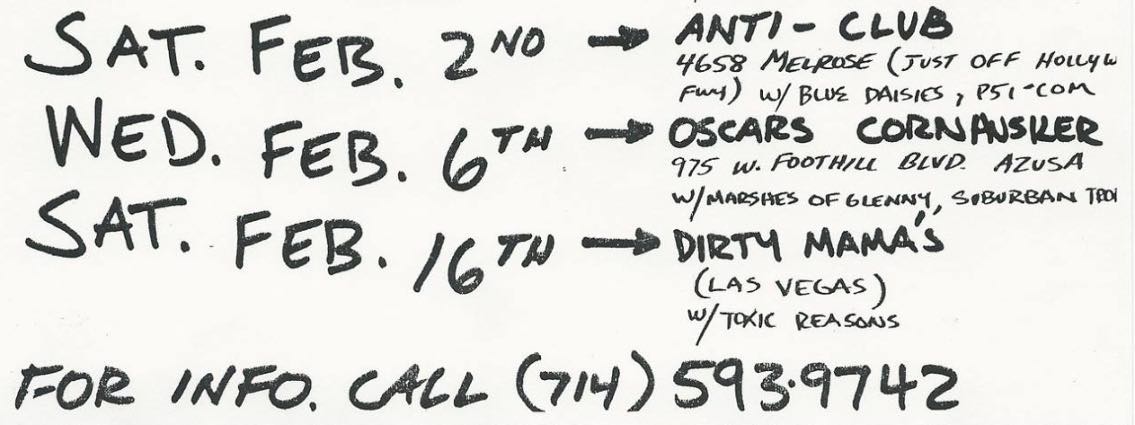 SAT. FEB. 2ND → ANTI-CLUB
4658 MELROSE (JUST OFF HOLLYW
FWY) W/ BLUE DAISIES, P51-COM
WED. FEB. 6TH → OSCARS CORNHUSKER
975 W. FOOTHILL BLVD. AZUSA
W/MARSHES OF GLENNY, SUBURBAN
SAT. FEB. 16TH → DIRTY MAMA'S
(LAS VEGAS)
W/TOXIC REASONS
FOR INFO. CALL (714) 593-9742